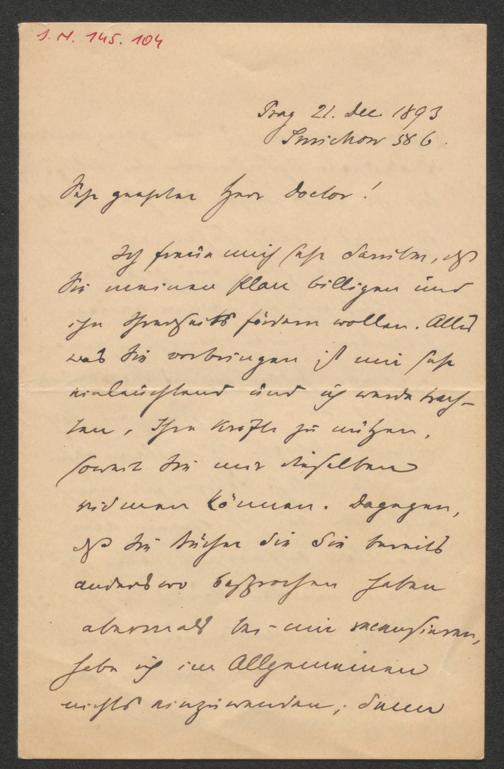 I. N. 145.104
Prag 21. Dec. 1893
Smichow 586.
Sehr geehrter Herr Doctor!
Ich freue mich sehr darüber, daß
Sie meinen Plan billigen und
ihn Ihrerseits fördern wollen. Alles
was Sie vorbringen ist mir sehr
einleuchtend und ich werde trach-
ten, Ihre Kräfte zu nützen,
soweit Sie mir dieselben
widmen können. Dagegen,
daß Sie Bücher die Sie bereits
anderswo besprochen haben
abermals bei mir recensieren,
habe ich im Allgemeinen
nichts einzuwenden; denn